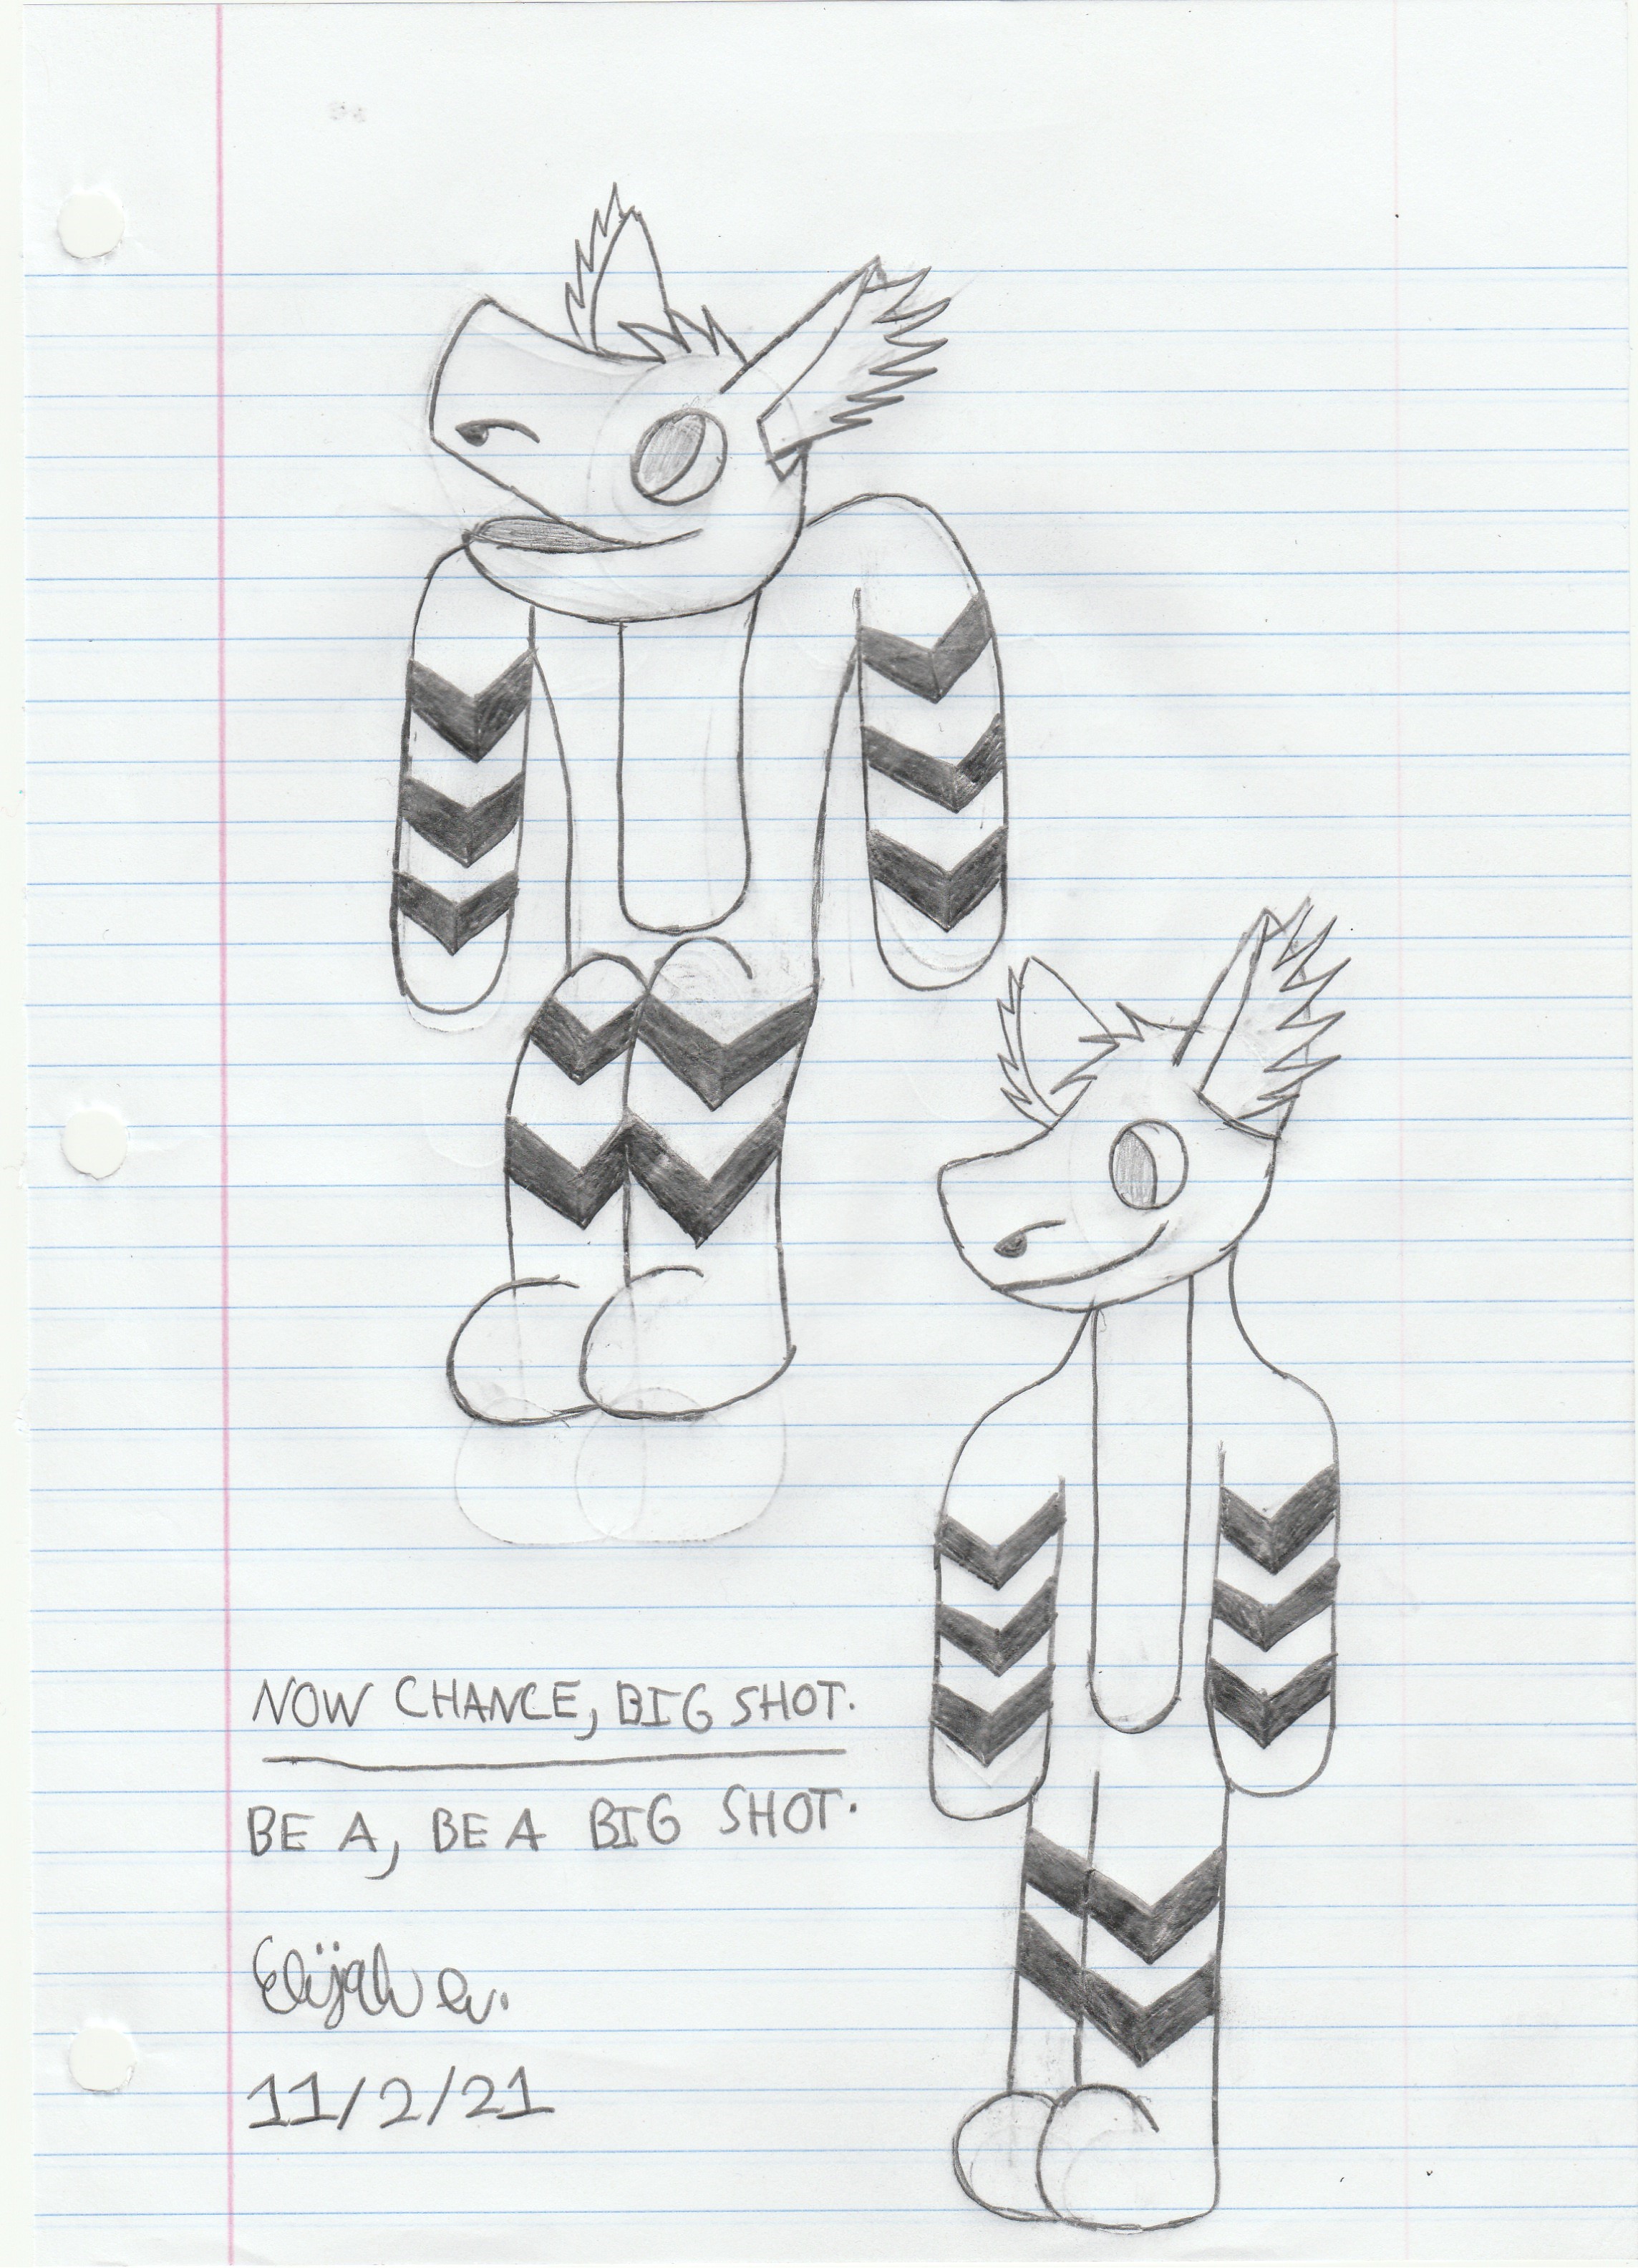 NOW CHANCE, BIG SHOT.
BE A, BE A BIG SHOT.
Elijah
11/2/21